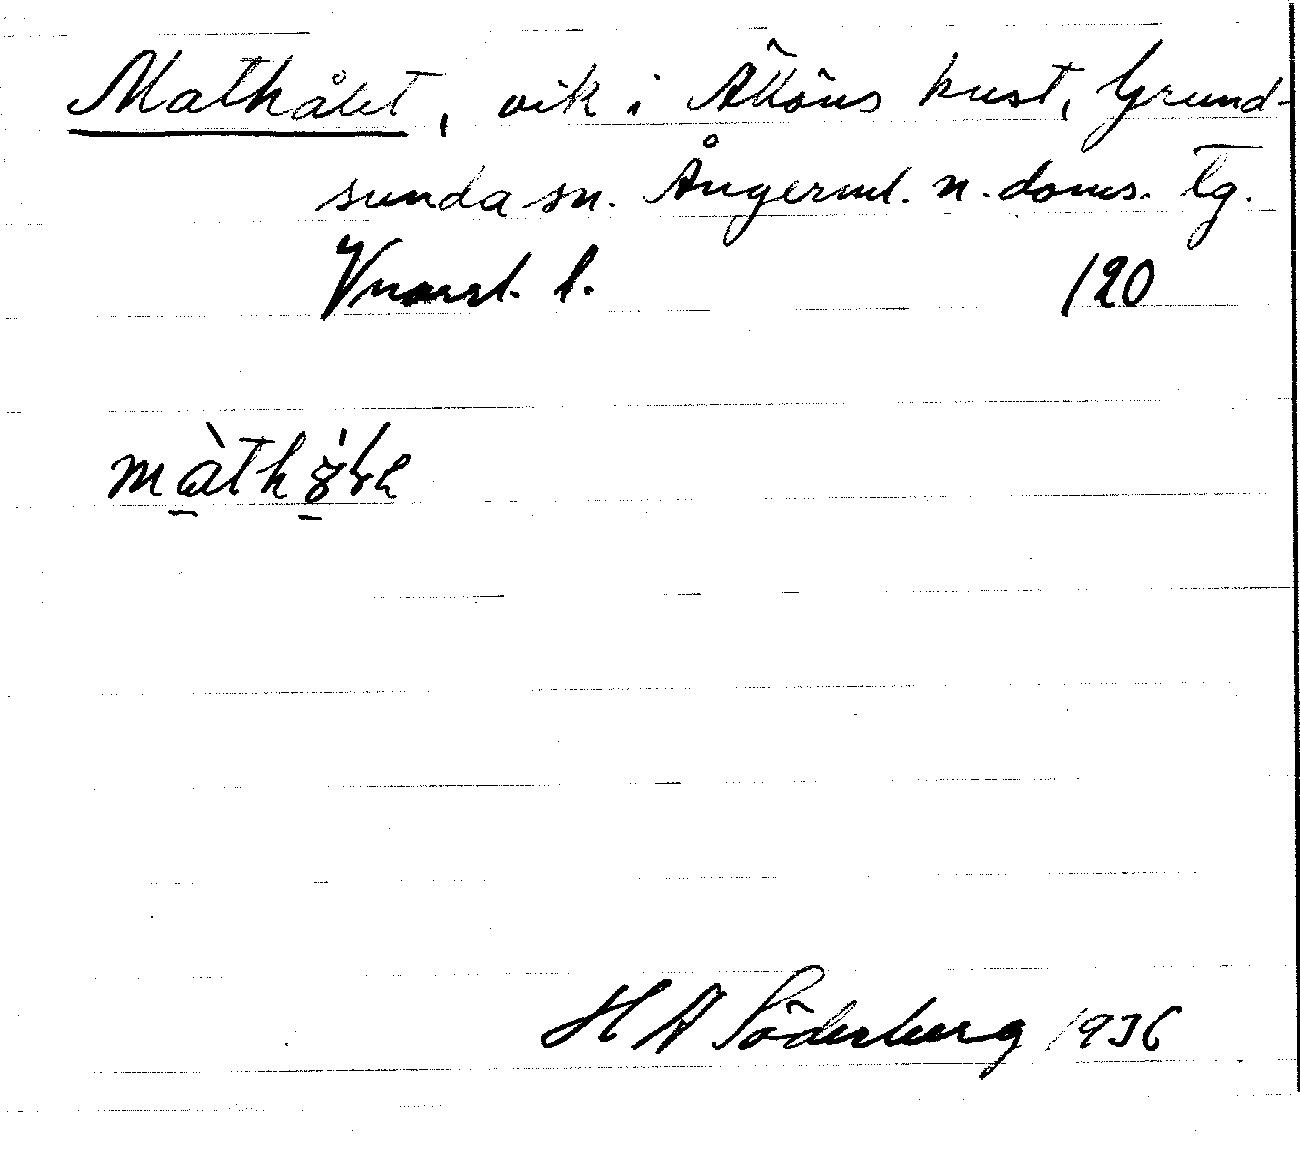 Mathålet, vik i Älöns kust, Grund-
sunda sn. Ångerml. n. doms. Tg.
Vnorrl. l. 120
màthå̀le
H A Söderberg 1936